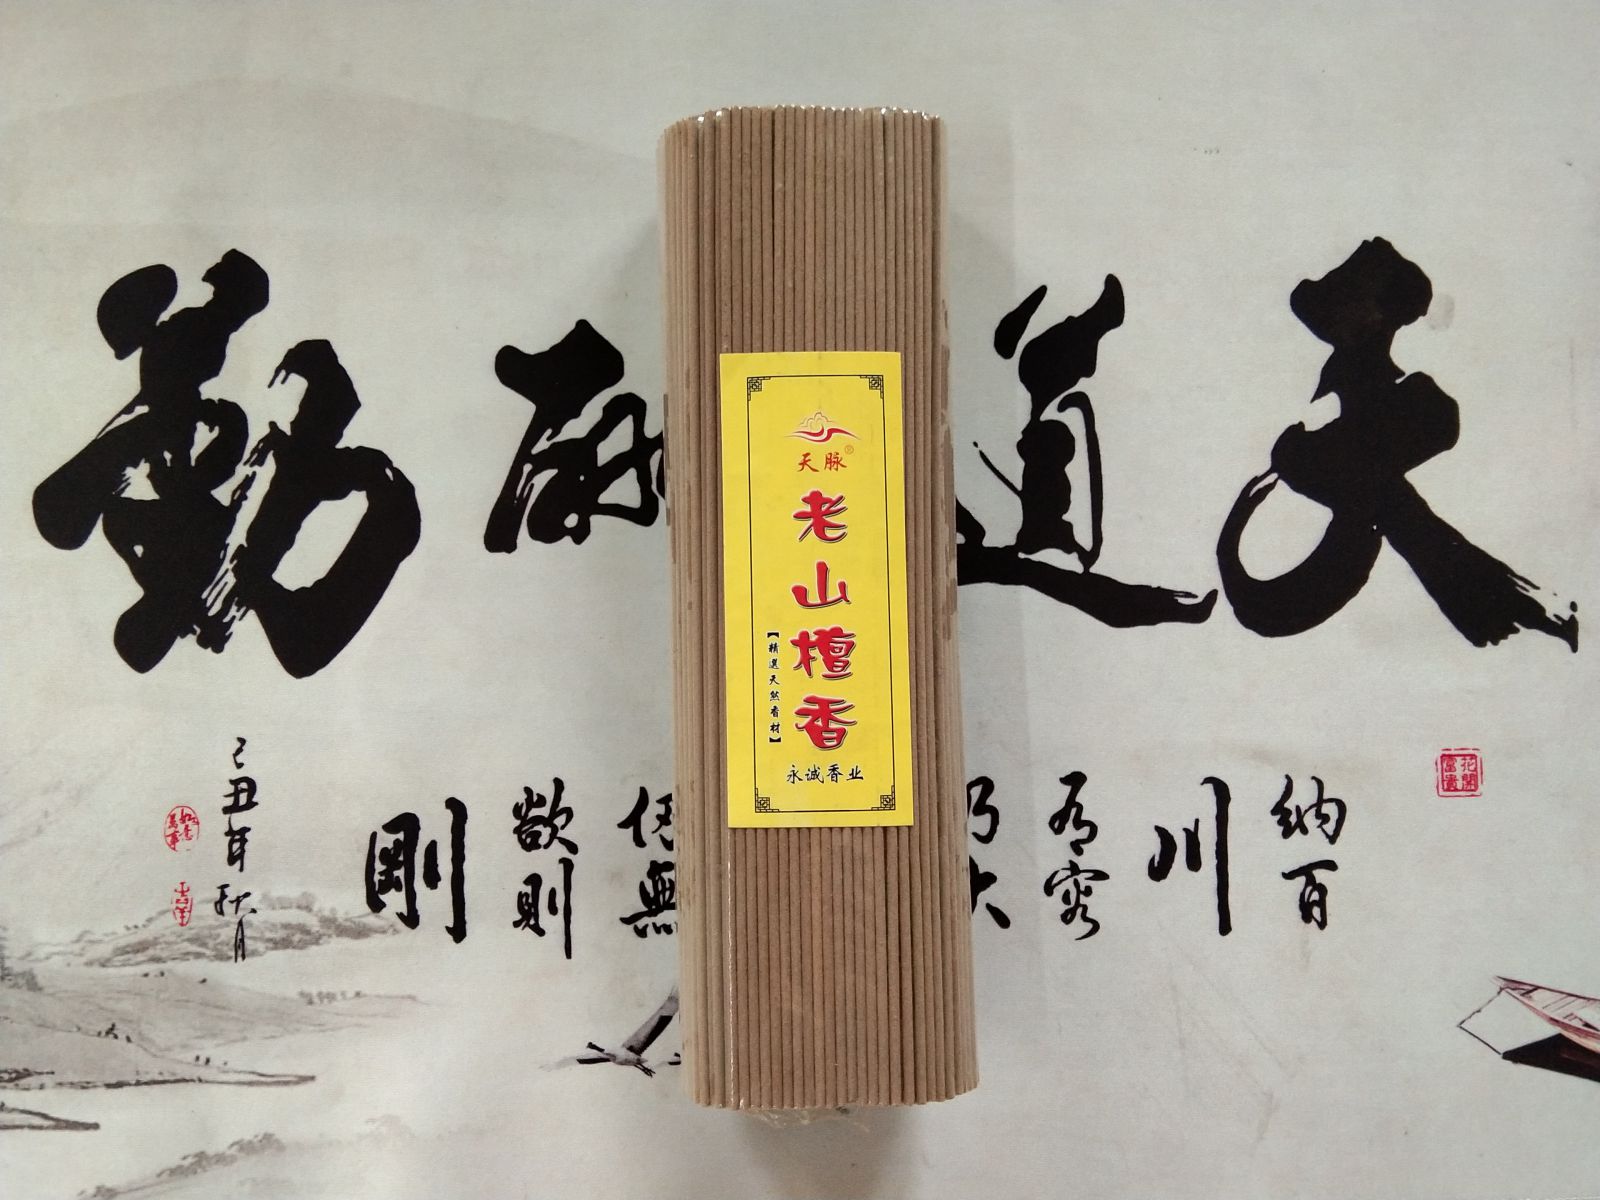 天道酬勤
天脉®
老山檀香
【精選天然香材】
永诚香业
纳百
川
有容
乃大
無
欲則
剛
己丑年秋月
花開富貴
吉羊